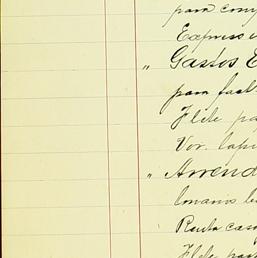 para com
Express
„ Gastos E
para fact
Flete pa
Vor. lapi
„ Arrend
Renta casa
Flete pa